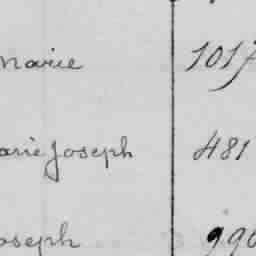 Marie 1017
arie Joseph 481
oseph 990